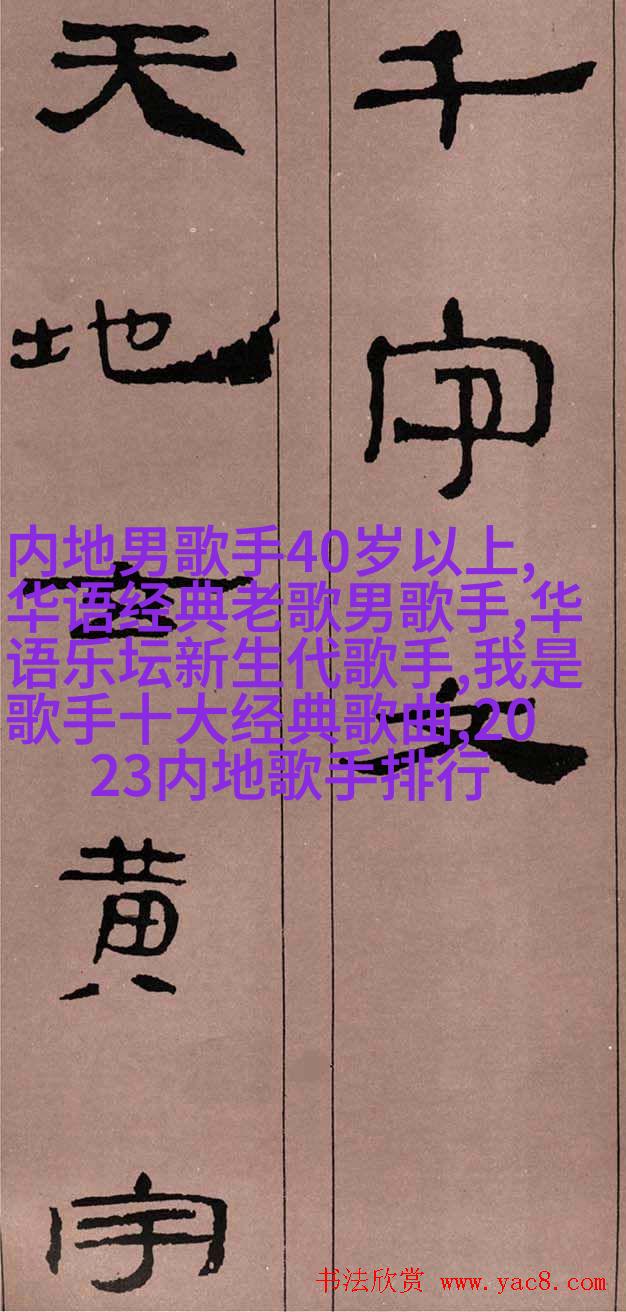 千字文
天地黄宇
内地男歌手40岁以上,
华语经典老歌男歌手,华
语乐坛新生代歌手,我是
歌手十大经典歌曲,20
23内地歌手排行
书法欣赏 www.yac8.com